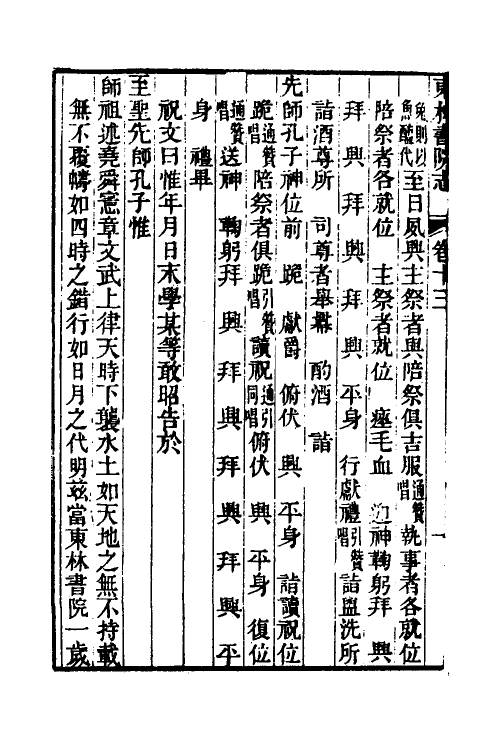 東林書院志 卷十三
兔則以魚醢代至日夙興主祭者與陪祭俱吉服通贊唱執事者各就位
陪祭者各就位 主祭者就位 瘞毛血 迎神鞠躬拜 興
拜 興 拜 興 拜 興 平身 行獻禮引贊唱詣盥洗所
詣酒尊所 司尊者舉羃 酌酒 詣
先師孔子神位前 跪 獻爵 俯伏 興 平身 詣讀祝位
跪通贊唱陪祭者俱跪引贊唱讀祝通引同唱俯伏 興 平身 復位
通贊唱送神 鞠躬拜 興 拜 興 拜 興 拜 興 平
身 禮畢
祝文曰惟年月日末學某等敢昭告於
至聖先師孔子惟
師祖述堯舜憲章文武上律天時下襲水土如天地之無不持載
無不覆幬如四時之錯行如日月之代明茲當東林書院一歲